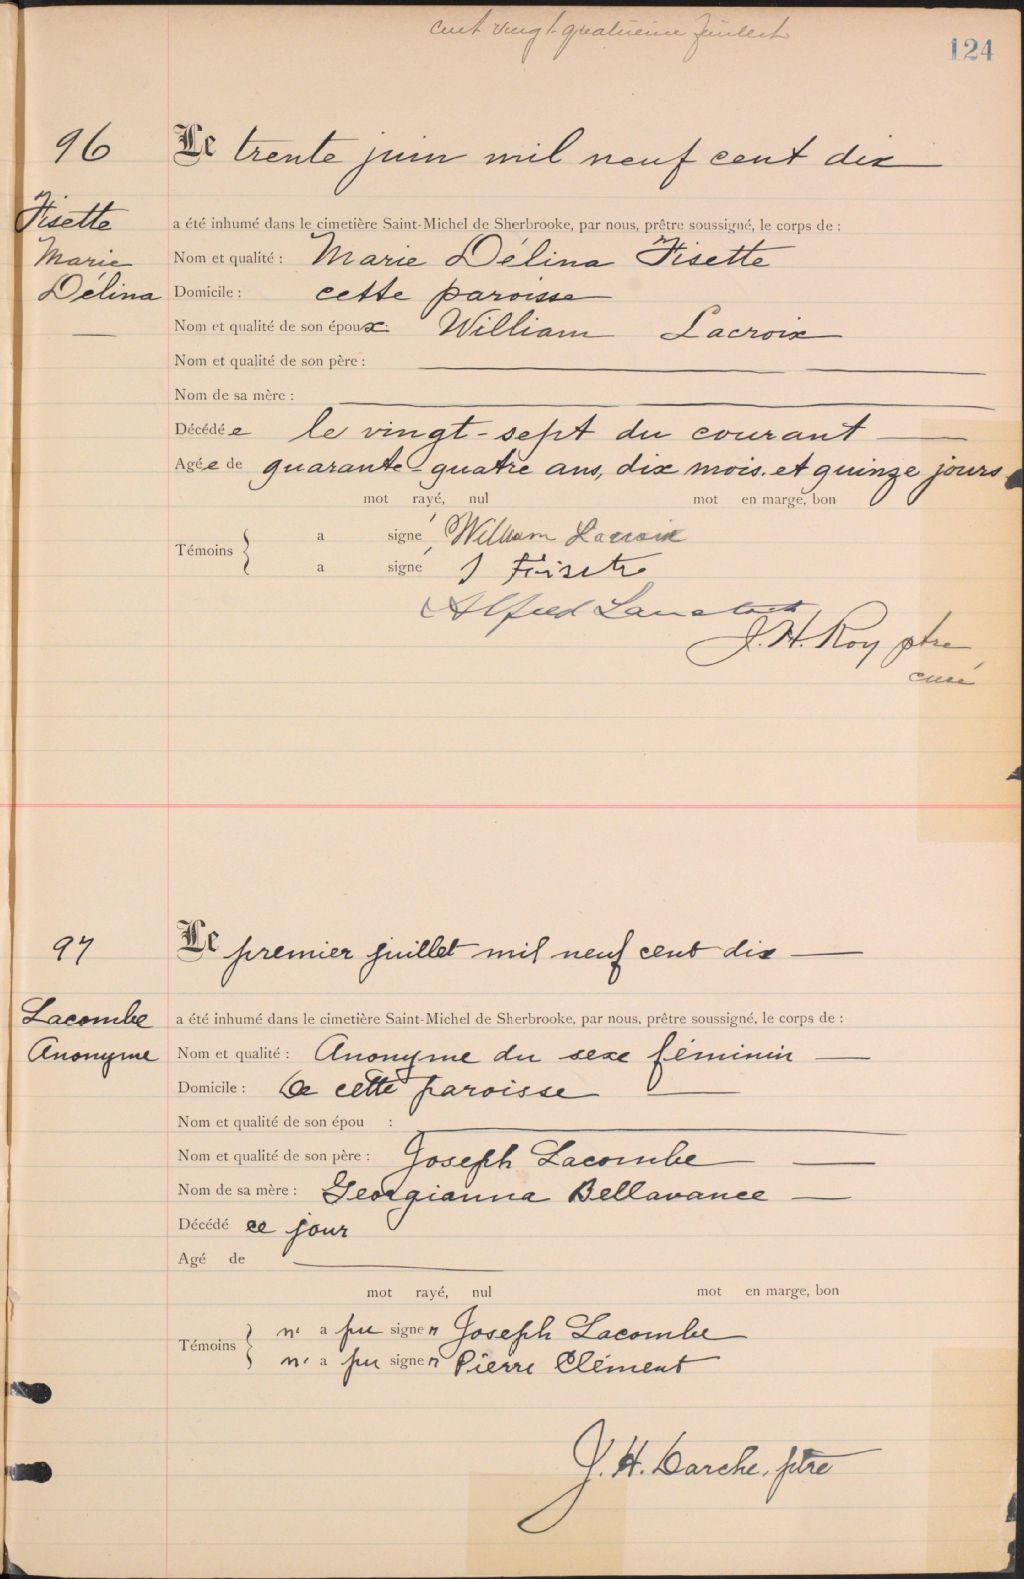 cent vingt-quatrième feuillet
124
96
Le trente juin mil neuf cent dix
Fisette
Marie
Délina
a été inhumé dans le cimetière Saint-Michel de Sherbrooke, par nous, prêtre soussigné, le corps de :
Nom et qualité : Marie Délina Fisette
Domicile : cette paroisse
Nom et qualité de son époux: William Lacroix
Nom et qualité de son père :
Nom de sa mère :
Décédée le vingt-sept du courant
Agée de quarante-quatre ans, dix mois et quinze jours.
mot rayé, nul mot en marge, bon
Témoins
a signé William Lacroix
a signé J Fisette
Alfred
J. H. Roy ptre
curé
97
Le premier juillet mil neuf cent dix
Lacombe
Anonyme
a été inhumé dans le cimetière Saint-Michel de Sherbrooke, par nous, prêtre soussigné, le corps de :
Nom et qualité : Anonyme du sexe féminin
Domicile : De cette paroisse
Nom et qualité de son épou :
Nom et qualité de son père : Joseph Lacombe
Nom de sa mère : Georgianna Bellavance
Décédé ce jour
Agé de
mot rayé, nul mot en marge, bon
Témoins
n' a pu signer Joseph Lacombe
n' a pu signer Pierre Clément
J. H. Darche, ptre